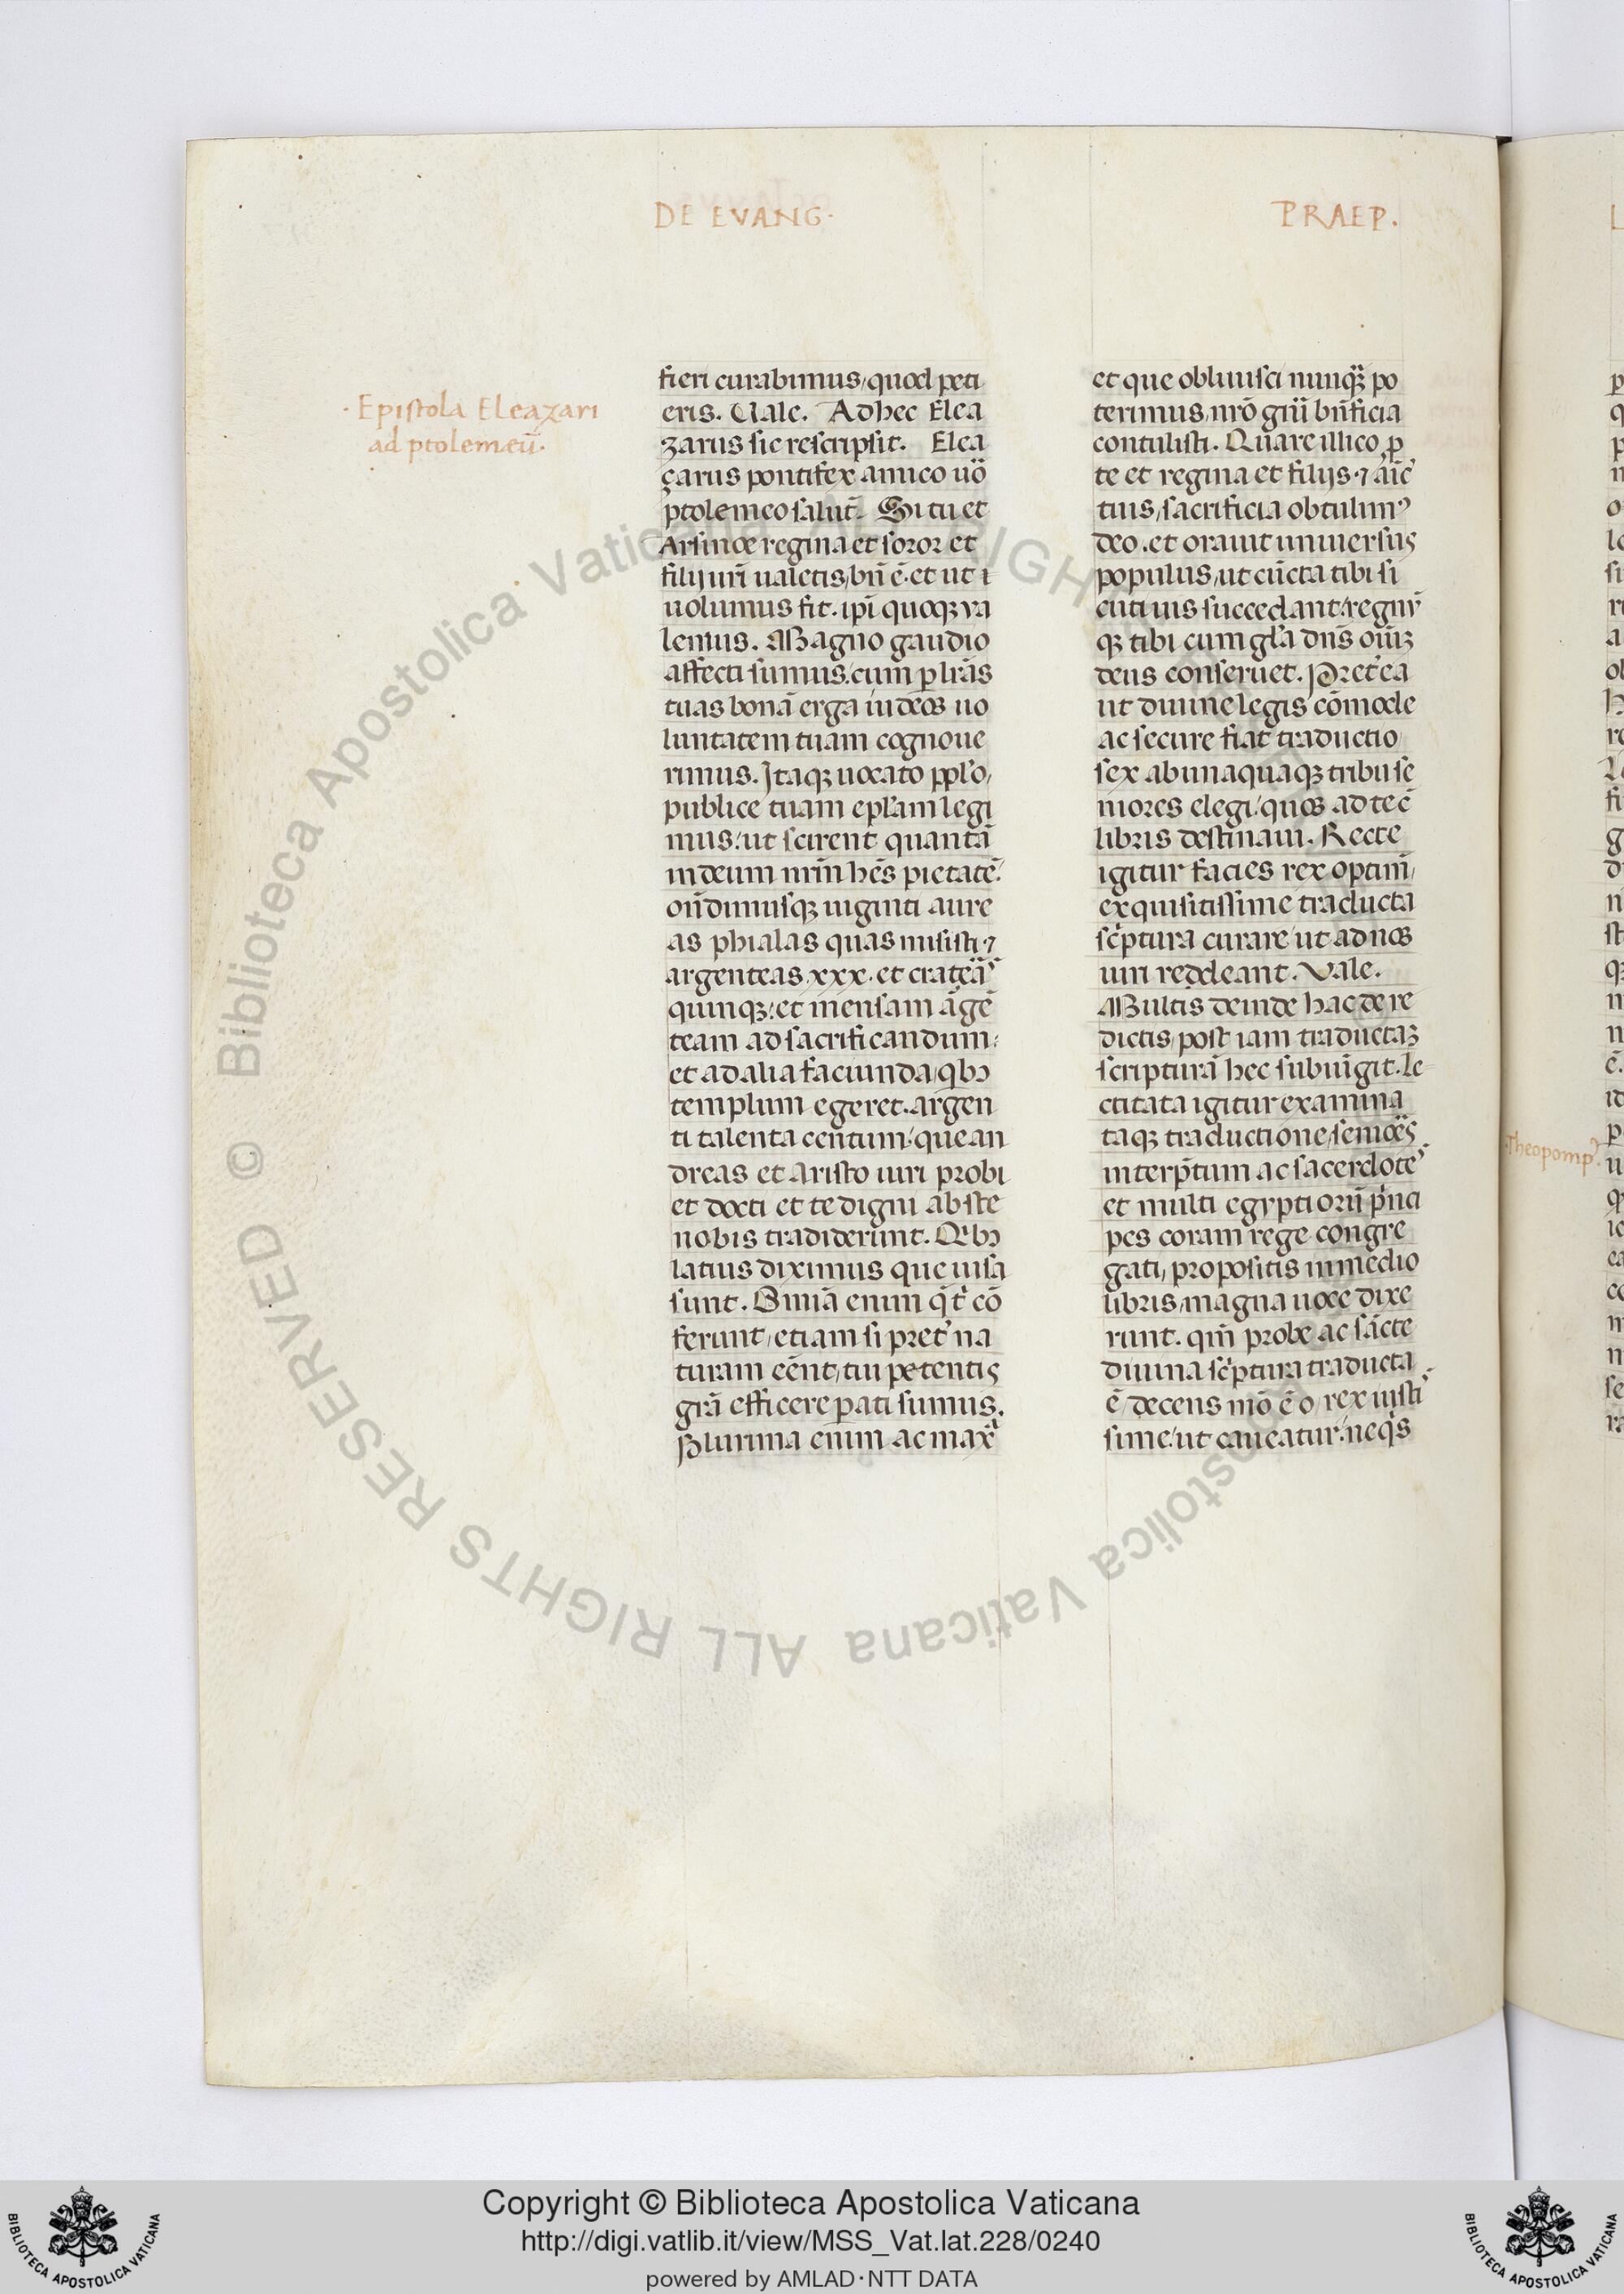 DE EVANG·
PRAEP.
· Epistola Eleazari
ad ptolemeū·
fieri curabimus, quod peti
eris. Uale. Ad hec Elea
zarus sic rescripsit. Elea
çarus pontifex amico uo
ptolemeo salut̄. Si tu et
Arsinoe regina et soror et
filij uri ualetis, bn̄ ē. et ut
uolumus fit. ipi quoqꝫ va
lemus. Magno gaudio
affecti sumus, cum ꝑ lr̄as
tuas bonā erga iudeos uo
luntatem tuam cognoue
rimus. Itaqꝫ uocato ppl'o,
publice tuam epl'am legi
mus: ut scirent quantā
in deum nr̄m hēs pietatē:
on̄dimusqꝫ uiginti aure
as phialas quas misisti ⁊
argenteas .xxx. et cratea
quinqꝫ: et mensam age
team ad sacrificandum:
et ad alia faciunda, qbꝫ
templum egeret. argen
ti talenta centum: que an
dreas et Aristo uiri probi
et docti et te digni abs te
nobis tradiderunt. Qbꝫ
latius diximus que uisa
sunt. Omnia enim q̄ t' cō
ferunt, etiam si pret' na
turam eēnt, tui petentis
grā efficere pati sumus.
Plurima enim ac max
et que obliuisci nunqꝫ po
terimus, nrō gn̄i bn̄ficia
contulisti. Quare illico ꝓ
te et regina et filijs ⁊ amic
tuis, sacrificia obtulimꝰ
deo. et orauit uniuersus
populus, ut cūcta tibi si
cuti uis succedant: regnū
qꝫ tibi cum gl'a dns oīuꝫ
deus conseruet. Pret'ea
ut diuine legis cōmode
ac secure fiat traductio
sex ab unaquaqꝫ tribu se
niores elegi, quos ad te c̄
libris destinaui. Recte
igitur facies rex optim̄,
exquisitissime traducta
sc'ptura curare ut ad nos
uiri redeant. Vale.
Multis deinde hac de re
dictis, post iam traductaꝫ
scripturā hec subiūgit. le-
ctitata igitur examina
taqꝫ traductione, seniores
interp̄tum ac sacerdotes
et multi egyptiorū p'nci
pes coram rege congre
gati, propositis in medio
libris, magna uoce dixe
runt. qm̄ probe ac sācte
diuina sc'ptura traducta
ē, decens mō ē o rex iusti
sime: ut caueatur, neqs
·Theopompꝰ·
Copyright © Biblioteca Apostolica Vaticana
http://digi.vatlib.it/view/MSS_Vat.lat.228/0240
powered by AMLAD·NTT DATA
BIBLIOTECA APOSTOLICA VATICANA
BIBLIOTECA APOSTOLICA VATICANA
© Biblioteca Apostolica Vaticana ALL RIGHTS RESERVED